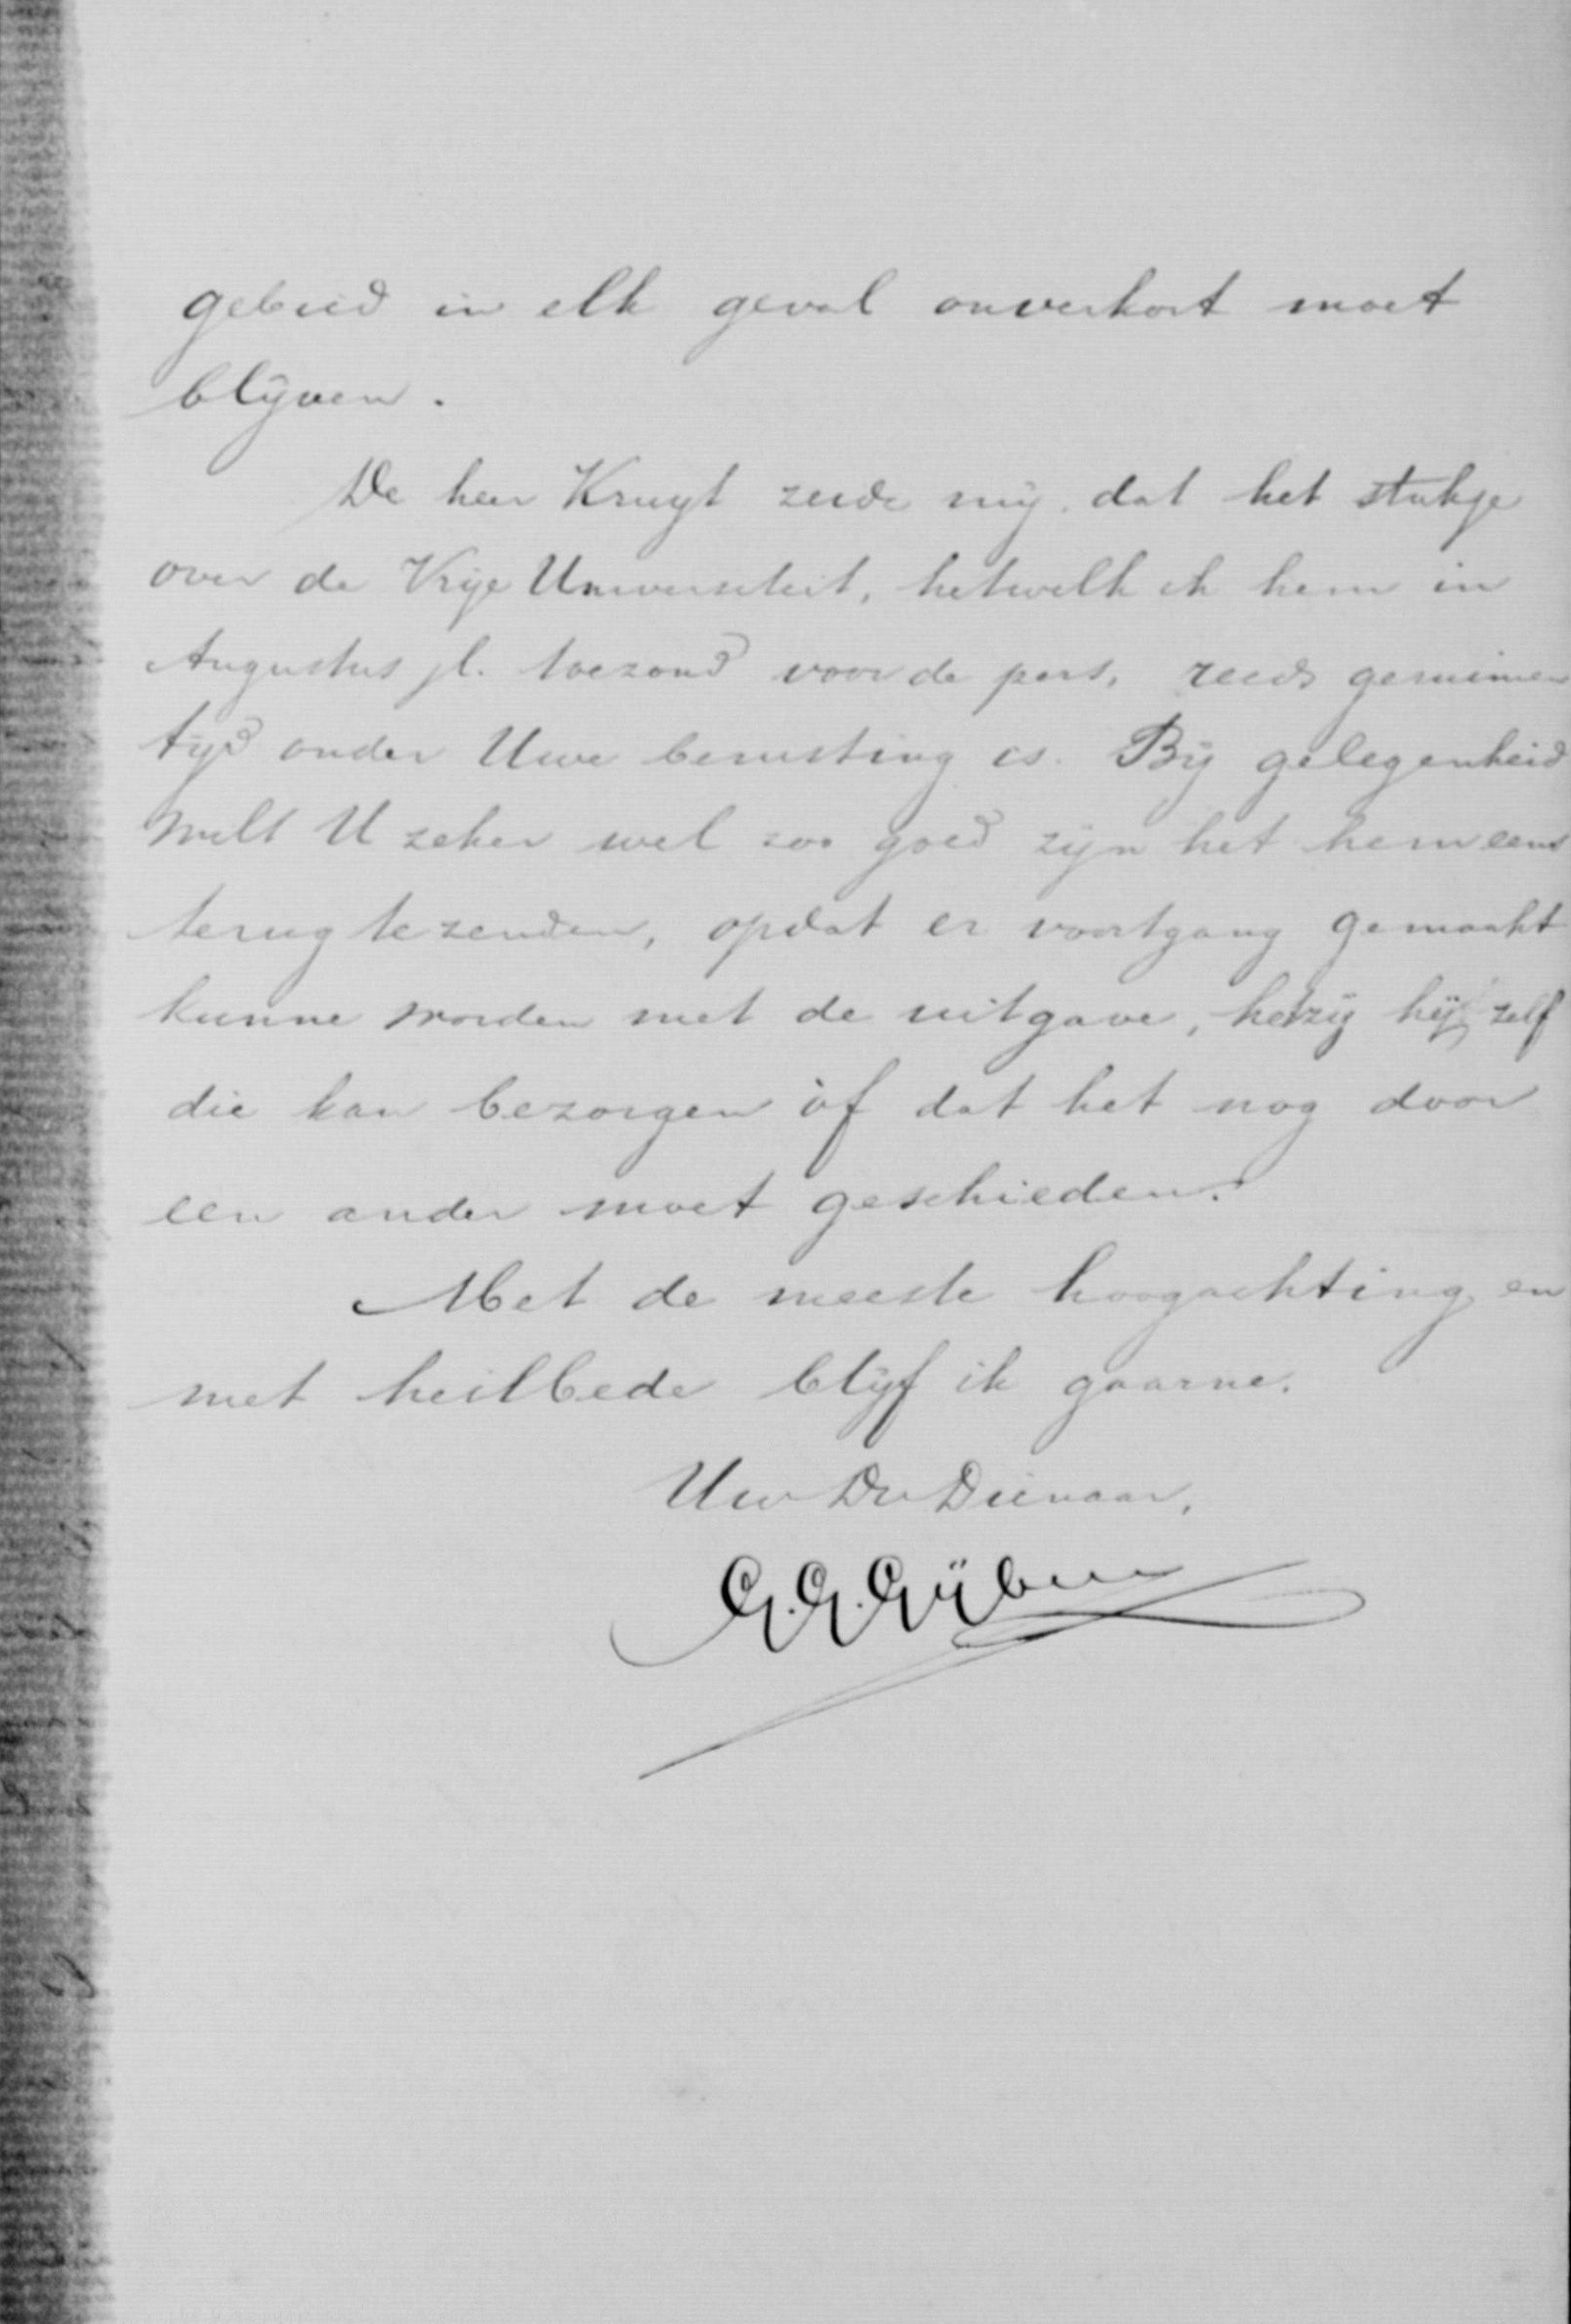 gebied in elk geval onverkort moet
blijven.
De heer Kruyt zeide mij, dat het stukje
over de Vrije Universiteit, hetwelk ik hem in
Augustus jl. toezond voor de pers, reeds geruimen
tijd onder Uwe berusting is. Bij gelegenheid
wilt U zeker wel zoo goed zijn het hem eens
terug te zenden, opdat er voortgang gemaakt
kunne worden met de uitgave, hetzij hij zelf
die kan bezorgen òf dat het nog door
een ander moet geschieden.
Met de meeste hoogachting en
met heilbede blijf ik gaarne.
Uw Dw Dienaar,